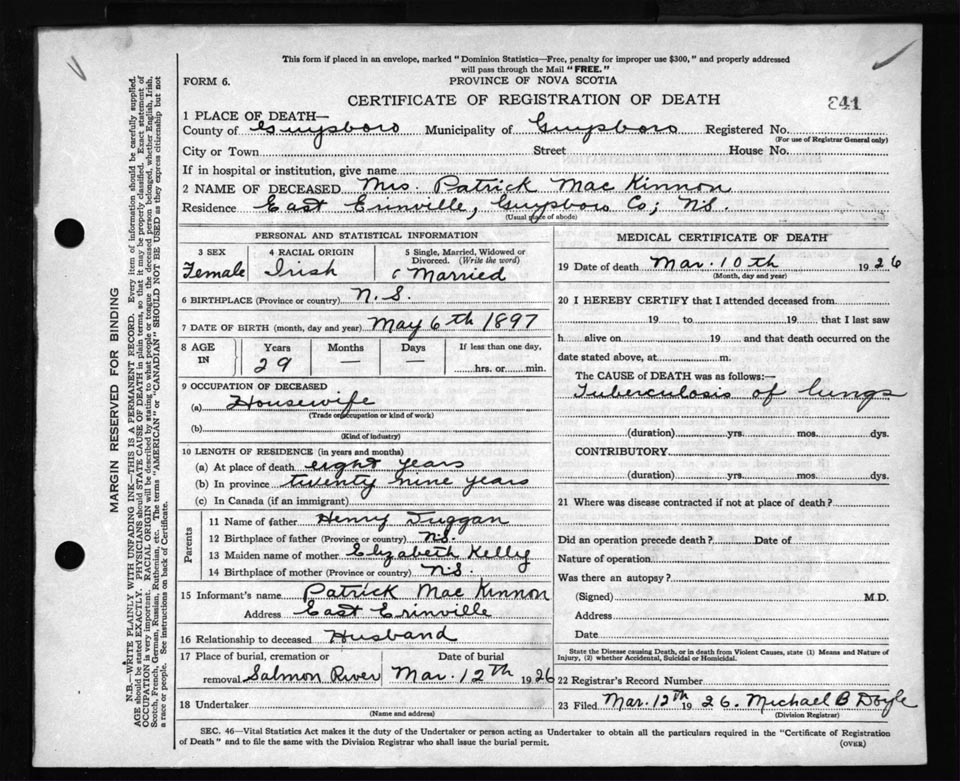 This form if placed in an envelope, marked "Dominion Statistics—Free, penalty for improper use $300," and properly addressed
will pass through the Mail "FREE."
FORM 6.
PROVINCE OF NOVA SCOTIA
CERTIFICATE OF REGISTRATION OF DEATH
841
1 PLACE OF DEATH—
County of Guysboro Municipality of Guysboro Registered No.
(For use of Registrar General only)
City or Town Street House No.
If in hospital or institution, give name
2 NAME OF DECEASED Mrs. Patrick Mac Kinnon
Residence East Erinville, Guysboro Co; N.S.
(Usual place of abode)
PERSONAL AND STATISTICAL INFORMATION
3 SEX 4 RACIAL ORIGIN 5 Single, Married, Widowed or
Divorced. (Write the word)
Female Irish Married
6 BIRTHPLACE (Province or country) N.S.
7 DATE OF BIRTH (month, day and year) May 6th 1897
8 AGE IN Years Months Days If less than one day,
29 — — hrs. or min.
9 OCCUPATION OF DECEASED
(a) Housewife
(Trade or occupation or kind of work)
(b)
(Kind of industry)
10 LENGTH OF RESIDENCE (in years and months)
(a) At place of death eight years
(b) In province twenty nine years
(c) In Canada (if an immigrant)
Parents
11 Name of father Henry Duggan
12 Birthplace of father (Province or country) N.S.
13 Maiden name of mother Elizabeth Kelly
14 Birthplace of mother (Province or country) N.S.
15 Informant's name Patrick Mac Kinnon
Address East Erinville
16 Relationship to deceased Husband
17 Place of burial, cremation or Date of burial
removal Salmon River Mar. 12th 1926
18 Undertaker
(Name and address)
MEDICAL CERTIFICATE OF DEATH
19 Date of death Mar. 10th 1926
(Month, day and year)
20 I HEREBY CERTIFY that I attended deceased from
19 to 19 that I last saw
h alive on 19 and that death occurred on the
date stated above, at m.
The CAUSE of DEATH was as follows:—
Tuberculosis of lungs
(duration) yrs. mos. dys.
CONTRIBUTORY
(duration) yrs. mos. dys.
21 Where was disease contracted if not at place of death?
Did an operation precede death? Date of
Nature of operation
Was there an autopsy?
(Signed) M.D.
Address
Date
State the Disease causing Death, or in death from Violent Causes, state (1) Means and Nature of
Injury, (2) whether Accidental, Suicidal or Homicidal.
22 Registrar's Record Number
23 Filed Mar. 12th 1926. Michael B Doyle
(Division Registrar)
SEC. 46—Vital Statistics Act makes it the duty of the Undertaker or person acting as Undertaker to obtain all the particulars required in the "Certificate of Registration
of Death" and to file the same with the Division Registrar who shall issue the burial permit.
(OVER)
MARGIN RESERVED FOR BINDING
N.B.—WRITE PLAINLY WITH UNFADING INK—THIS IS A PERMANENT RECORD. Every item of information should be carefully supplied.
AGE should be stated EXACTLY. PHYSICIANS should STATE CAUSE OF DEATH in plain terms, so that it may be properly classified. Exact statement of
OCCUPATION is very important. RACIAL ORIGIN will be described by stating to what people or tongue the deceased person belonged, whether English, Irish,
Scotch, French, German, Russian, Ruthenian, etc. The terms "AMERICAN" or "CANADIAN" SHOULD NOT BE USED as they express citizenship but not
a race or people. See instructions on back of Certificate.